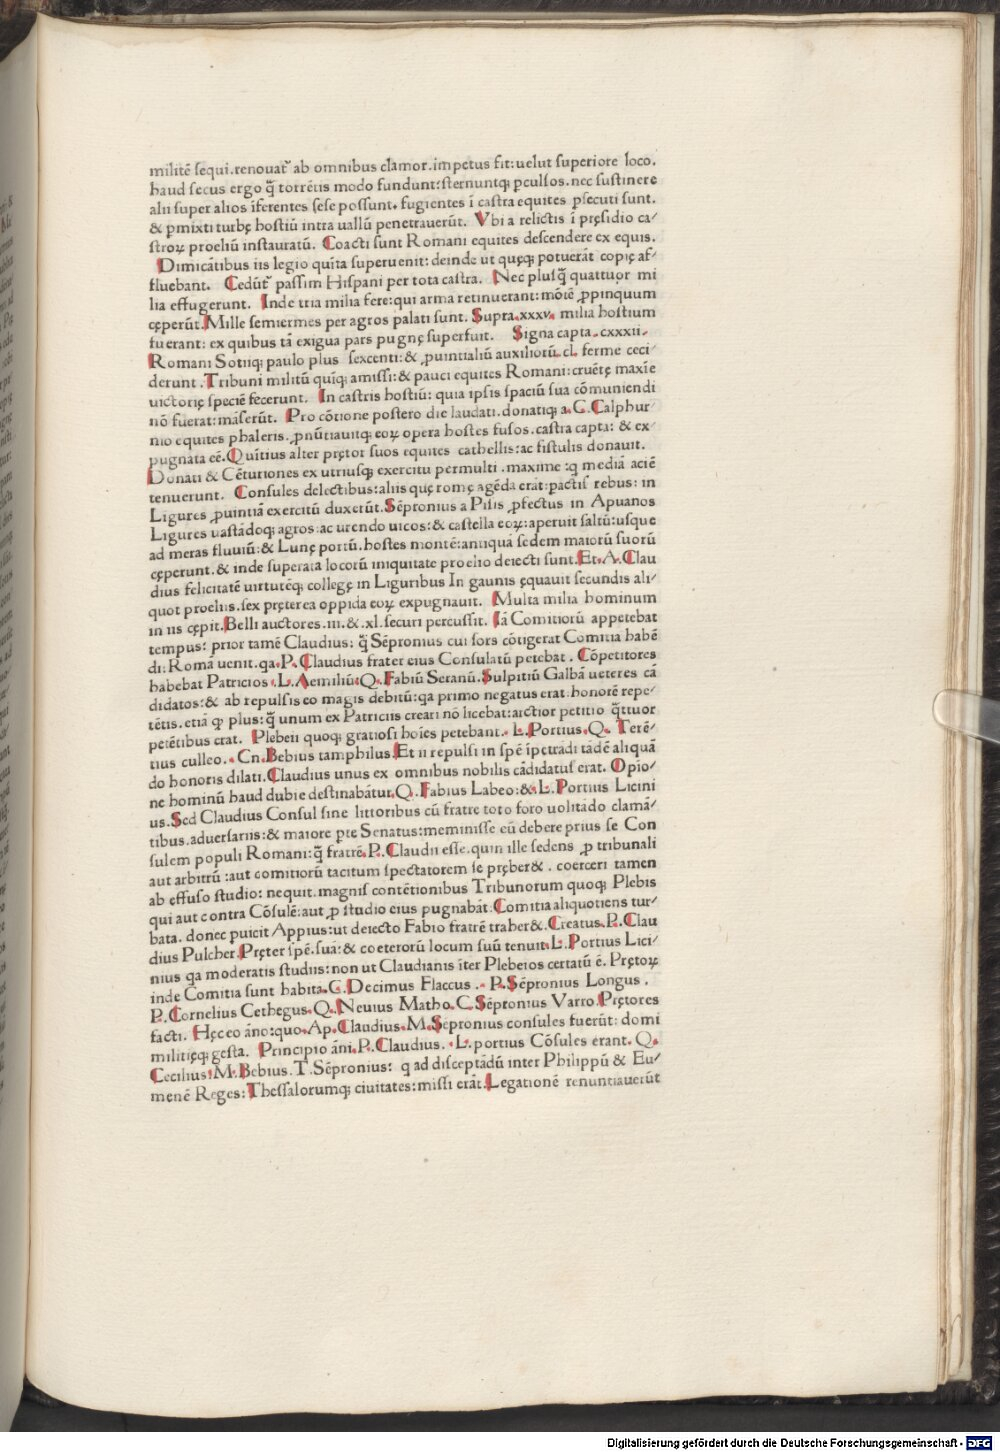 militē sequi. renouatˀ ab omnibus clamor. impetus fit: uelut superiore loco.
haud secus ergo q̄ torrētis modo fundunt: sternuntq; pculsos. nec sustinere
alii super alios īferentes sese possunt. fugientes ī castra equites psecuti sunt.
& pmixti turbę hostiū intra uallū penetrauerūt. Vbi a relictis ī pręsidio ca/
stroꝝ proeliū instauratū. Coacti sunt Romani equites descendere ex equis.
Dimicātibus iis legio quīta superuenit: deinde ut quęq; potuerāt copię af/
fluebant. Cedūtˀ passim Hispani per tota castra. Nec plusq̄ quattuor mi
lia effugerunt. Inde tria milia fere: qui arma retinuerant: mōtē ꝓpinquum
cęperūt. Mille semiermes per agros palati sunt. Supra. xxxv. milia hostium
fuerant: ex quibus tā exigua pars pugnę superfuit. Signa capta. cxxxii.
Romani Sotiiq; paulo plus sexcenti: & ꝓuintialiū auxiliorū. cl. ferme ceci/
derunt. Tribuni militū quīq; amissi: & pauci equites Romani: cruētę maxīe
uictorię speciē fecerunt. In castris hostiū: quia ipsis spaciū sua cōmuniendi
nō fuerat: māserūt. Pro cōtione postero die laudati. donatiq; a. C. Calphur/
nio equites phaleris. ꝓnūtiauitq; eoꝝ opera hostes fusos. castra capta: & ex/
pugnata eē. Quītius alter prętor suos equites cathellis: ac fistulis donauit.
Donati & Cēturiones ex utriusq; exercitu permulti. maxime: q mediā aciē
tenuerunt. Consules delectibus: aliis quę romę agēda erāt: pactis rebus: in
Ligures ꝓuintiā exercitū duxerūt. Sēpronius a Pisis ꝓfectus in Apuanos
Ligures uastādoq; agros: ac urendo uicos: & castella eoꝝ: aperuit saltū: usque
ad meras fluuiū: & Lunę portū. hostes montē: antiquā sedem maiorū suorū
cęperunt. & inde superata locorū iniquitate proelio deiecti sunt. Et. A. Clau
dius felicitatē uirtutēq; collegę in Liguribus In gaunis ęquauit secundis ali/
quot proeliis. sex pręterea oppida eoꝝ expugnauit. Multa milia hominum
in iis cępit. Belli auctores. iii. &. xl. securi percussit. Iā Comitiorū appetebat
tempus: prior tamē Claudius: q̄ Sēpronius cui sors cōtigerat Comitia habē
di: Romā uenit. qa. P. Claudius frater eius Consulatū petebat. Cōpetitores
habebat Patricios. L. Aemiliū. Q. Fabiū Seranū. Sulpitiū Galbā ueteres cā
didatos: & ab repulsis eo magis debitū: qa primo negatus erat: honorē repe/
tētis. etiā qp plus: q̄ unum ex Patriciis creari nō licebat: arctior petitio q̄ttuor
petētibus erat. Plebeii quoq; gratiosi hoīes petebant. L. Portius. Q. Terē/
tius culleo. Cn. Bebius tamphilus. Et ii repulsi in spē īpetrādi tādē aliquā
do honoris dilati. Claudius unus ex omnibus nobilis cādidatus erat. Opio/
ne hominū haud dubie destinabātur. Q. Fabius Labeo: &. L. Portius Licini
us. Sed Claudius Consul sine littoribus cū fratre toto foro uolitādo clamā/
tibus. aduersariis: & maiore pte Senatus: meminisse eū debere prius se Con
sulem populi Romani: q̄ fratrē. P. Claudii esse. quin ille sedens ꝓ tribunali
aut arbitrū: aut comitiorū tacitum spectatorem se pręber&. coerceri tamen
ab effuso studio: nequit. magnis contētionibus Tribunorum quoq; Plebis
qui aut contra Cōsulē: aut ꝓ studio eius pugnabāt. Comitia aliquotiens tur/
bata. donec puicit Appius: ut deiecto Fabio fratrē traher&. Creatus. P. Clau
dius Pulcher. Pręter spē. suā: & coeterorū locum suū tenuit. L. Portius Lici/
nius qa moderatis studiis: non ut Claudianis īter Plebeios certatū ē. Prętoꝝ
inde Comitia sunt habita. C. Decimus Flaccus. P. Sēpronius Longus.
P. Cornelius Cethegus. Q. Neuius Matho. C. Sēpronius Varro. Prętores
facti. Hęc eo āno: quo. Ap. Claudius. M. Sēpronius consules fuerūt: domi
militięq; gesta. Principio āni. P. Claudius. L. portius Cōsules erant. Q.
Cecilius. M. Bebius. T. Sēpronius: q ad disceptādū inter Philippū & Eu/
menē Reges: Thessalorumq; ciuitates: missi erāt. Legationē renuntiauerūt
Digitalisierung gefördert durch die Deutsche Forschungsgemeinschaft - DFG